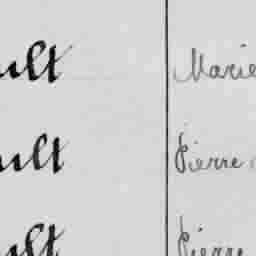 ult Marie
ult Pierre
ult Pierre